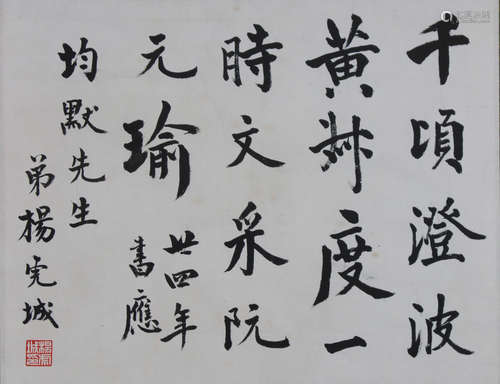 千頃澄波
黄叔度一
時文采阮
元瑜
廿四年
書應
均默先生
弟楊虎城